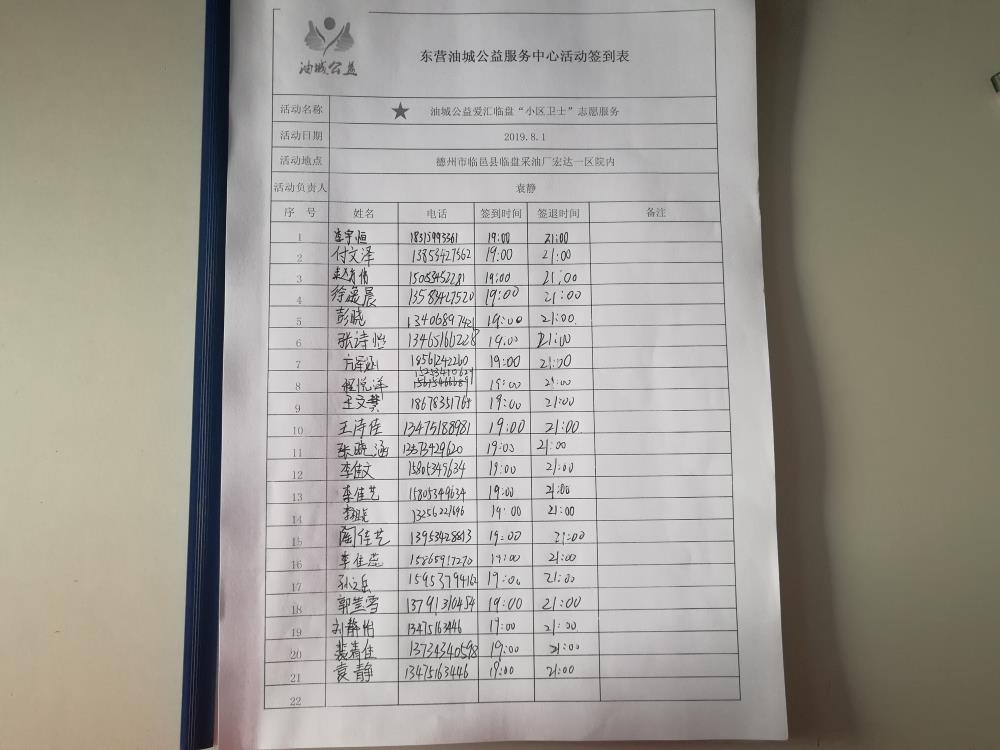 油城公益
东营油城公益服务中心活动签到表
活动名称 ★ 油城公益爱汇临盘“小区卫士”志愿服务
活动日期 2019.8.1
活动地点 德州市临邑县临盘采油厂宏达一区院内
活动负责人 袁静
序 号 姓名 电话 签到时间 签退时间 备注
1 李宇恒 18315993361 19:00 21:00
2 付文泽 13853427562 19:00 21:00
3 15053452281 19:00 21:00
4 13583427520 19:00 21:00
5 彭晓 13406897421 19:00 21:00
6 张诗怡 13465166228 19:00 21:00
7 18561242260 19:00 21:00
8 程悦洋 19:00 21:00
9 王文慧 18678351768 19:00 21:00
10 王诗佳 13475188981 19:00 21:00
11 张晓涵 13573429620 19:00 21:00
12 李佳文 15805349634 19:00 21:00
13 李佳艺 15805349634 19:00 21:00
14 13256227696 19:00 21:00
15 陶佳艺 13953428813 19:00 21:00
16 李佳蕊 15865917270 19:00 21:00
17 孙文岳 15953794162 19:00 21:00
18 郭芸雪 13791310454 19:00 21:00
19 刘静怡 13475163446 19:00 21:00
20 裴清佳 13734340598 19:00 21:00
21 袁静 13475163446 19:00 21:00
22